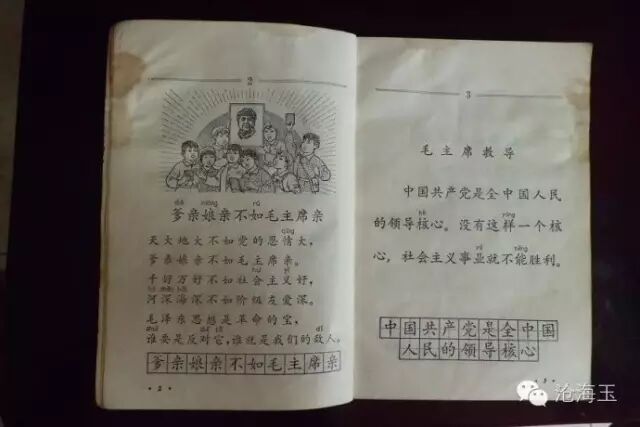 2
diē niáng rú
爹亲娘亲不如毛主席亲
qíng
天大地大不如党的恩情大,
爹亲娘亲不如毛主席亲。
千好万好不如社会主义好,
河深海深不如阶级友爱深。
毛泽东思想是革命的宝,
谁要是反对它,谁就是我们的敌人。
爹亲娘亲不如毛主席亲
·2·
3
毛主席教导
中国共产党是全中国人民
hé yàng
的领导核心。没有这样一个核
yè néng
心,社会主义事业就不能胜利。
中国共产党是全中国
人民的领导核心
·3·
沧海玉